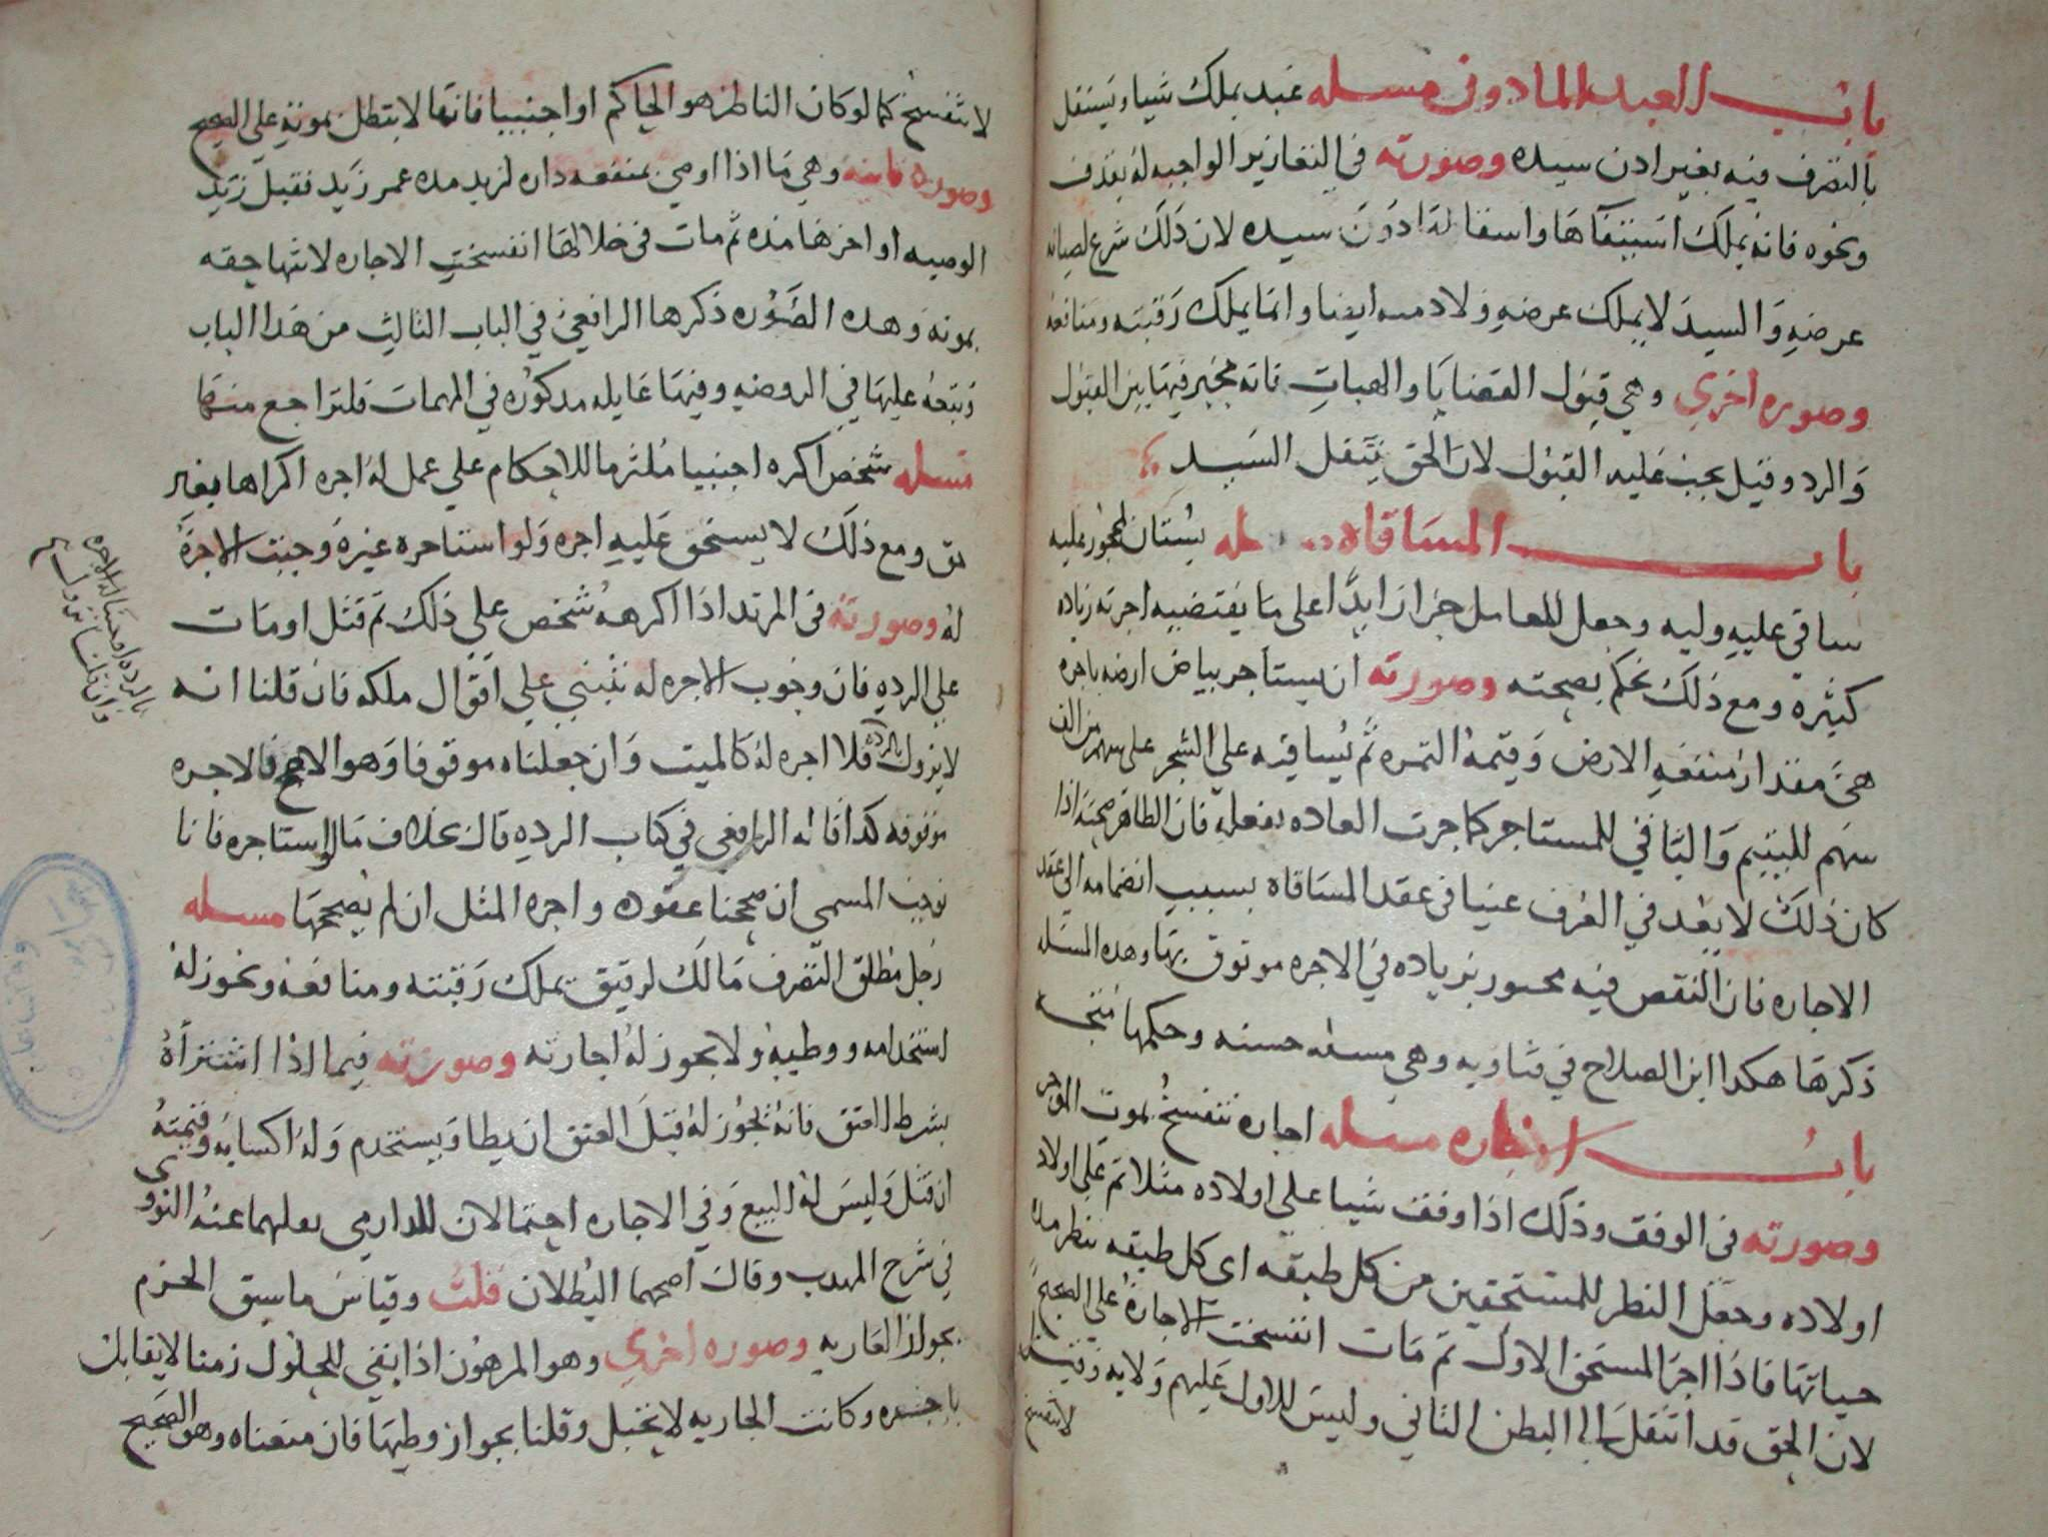 باب العبد المادون مسله عبد يملك شيا ويستقل
بالتصرف فيه بغير ادن سيده وصورته في التعازير الواجبه له بقدف
ونحوه فانه يملك استيفاها واسقالها دون سيده لان ذلك شرع لصيانه
عرضه والسيد لا يملك عرضه ولا دمه ايضا وانما يملك رقبته ومنافعه
وصوره اخري وهي قبول الوصايا والهبات فانه مخير فيها بين القبول
والرد وقيل يجب عليه القبول لان الحق ينتقل السيد
باب المساقاه مسله بستان لمحجور عليه
ساقي عليه وليه وجعل للعامل جزا زايدا علي ما يقتضيه اجرته زياده
كثيره ومع ذلك نحكم بصحته وصورته ان يستاجر بياض ارضه باجره
هي مقدار منفعه الارض وقيمه الثمره ثم يساقيه علي الشجر علي سهم من الف
سهم لليتيم والباقي للمستاجر كما جرت العاده بفعله فان الظاهر صحته اذا
كان ذلك لا يعد في العرف عيبا في عقد المساقاه بسبب انضمامه الي عقد
الاجاره فان النقص فيه مجبور بزياده في الاجره موثوق بها وهذه المسله
ذكرها هكذا ابن الصلاح في فتاويه وهي مسله حسنه وحكمها متجه
باب الاجاره مسله اجاره تنفسخ بموت الموجر
وصورته في الوقف وذلك اذا وقف شيا علي اولاده مثلا ثم علي اولاد
اولاده وجعل النظر للمستحقين من كل طبقه اي كل طبقه تنظر مده
حياتها فاذا اجر المستحق الاول ثم مات انفسخت الاجاره علي الصحيح
لان الحق قد انتقل الي البطن الثاني وليس للاول عليهم ولايه وقيل
لا تنفسخ
لا تنفسخ كما لو كان الناظر هو الحاكم او اجنبيا فانها لا تبطل بموته علي الصحيح
وصوره ثانيه وهي ما اذا اوصي بمنفعه داره لزيد مده عمر زيد فقبل زيد
الوصيه واجرها مده ثم مات في خلالها انفسخت الاجاره لانتها حقه
بموته وهده الصوره ذكرها الرافعي في الباب الثالث من هدا الباب
وتبعه عليها في الروضه وفيها غايله مدكوره في المهمات فلتراجع منها
مسله شخص اكره اجنبيا ملتزما للاحكام علي عمل له اجره اكراها بغير
حق ومع ذلك لا يستحق عليه اجره ولو استاجره غيره وجبت الاجره
له وصورته في المرتد اذا اكرهه شخص علي ذلك ثم قتل او مات
علي الرده فان وجوب الاجره له تنبني علي اقوال ملكه فان قلنا انه
لا يزول بالرده فلا اجره له كالميت وان جعلناه موقوفا وهو الاصح فالاجره
موقوفه كدا قاله الرافعي في كتاب الرده قال بخلاف ما لو استاجره فانا
نوجب المسمي ان صححنا عقوده واجره المثل ان لم نصححها مسله
رجل مطلق التصرف مالك لرقيق يملك رقبته ومنافعه ويجوز له
استخدامه ووطيه ولا يجوز له اجارته وصورته فيما اذا اشتراه
بشرط العتق فانه يجوز له قبل العتق ان يطا ويستخدم وله اكسابه وقيمته
ان قتل وليس له البيع وفي الاجاره احتمالان للدارمي نقلهما عنه النووي
في شرح المهدب وقال اصحهما البطلان قلت وقياس ما سبق الجزم
بجواز العاريه وصوره اخري وهو المرهون اذا بقي للحلول زمنا لا يقابل
باجره وكانت الجاريه لا تحبل وقلنا بجواز وطيها فان منعناه وهو الصحيح
بالرده اوجبنا له الاجره
وان قلنا يزول